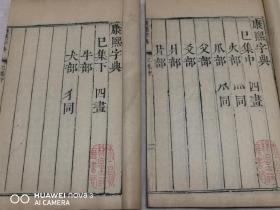 康熙字典
巳集中 四畫
火部 灬同
爪部 爫同
父部
爻部
爿部
片部
康熙字典
巳集下 四畫
牛部
犬部 犭同
HUAWEI nova 7
AI CAMERA